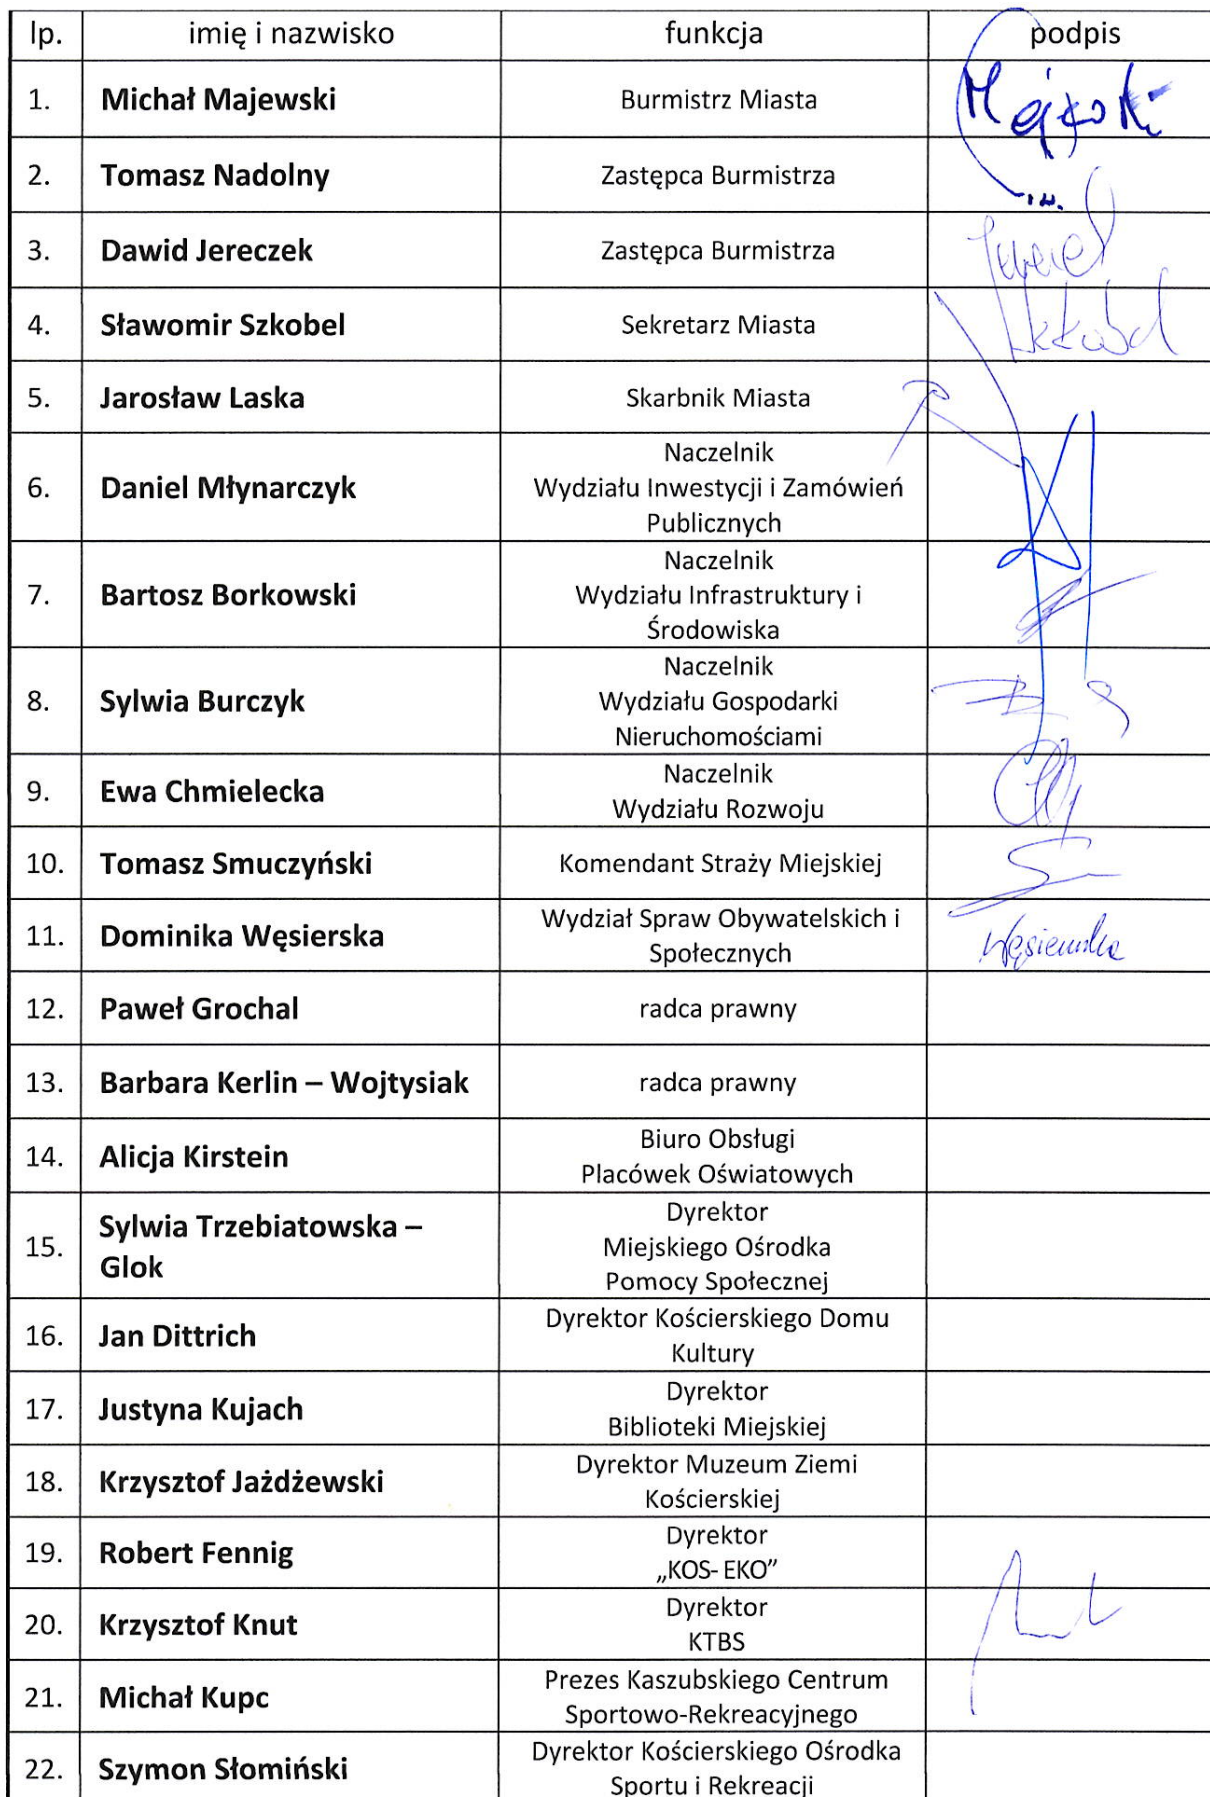 lp. imię i nazwisko funkcja podpis
1. Michał Majewski Burmistrz Miasta
2. Tomasz Nadolny Zastępca Burmistrza
3. Dawid Jereczek Zastępca Burmistrza
4. Sławomir Szkobel Sekretarz Miasta
5. Jarosław Laska Skarbnik Miasta
6. Daniel Młynarczyk Naczelnik
Wydziału Inwestycji i Zamówień
Publicznych
7. Bartosz Borkowski Naczelnik
Wydziału Infrastruktury i
Środowiska
8. Sylwia Burczyk Naczelnik
Wydziału Gospodarki
Nieruchomościami
9. Ewa Chmielecka Naczelnik
Wydziału Rozwoju
10. Tomasz Smuczyński Komendant Straży Miejskiej
11. Dominika Węsierska Wydział Spraw Obywatelskich i
Społecznych Węsierska
12. Paweł Grochal radca prawny
13. Barbara Kerlin – Wojtysiak radca prawny
14. Alicja Kirstein Biuro Obsługi
Placówek Oświatowych
15. Sylwia Trzebiatowska –
Glok Dyrektor
Miejskiego Ośrodka
Pomocy Społecznej
16. Jan Dittrich Dyrektor Kościerskiego Domu
Kultury
17. Justyna Kujach Dyrektor
Biblioteki Miejskiej
18. Krzysztof Jażdżewski Dyrektor Muzeum Ziemi
Kościerskiej
19. Robert Fennig Dyrektor
„KOS- EKO”
20. Krzysztof Knut Dyrektor
KTBS
21. Michał Kupc Prezes Kaszubskiego Centrum
Sportowo-Rekreacyjnego
22. Szymon Słomiński Dyrektor Kościerskiego Ośrodka
Sportu i Rekreacji